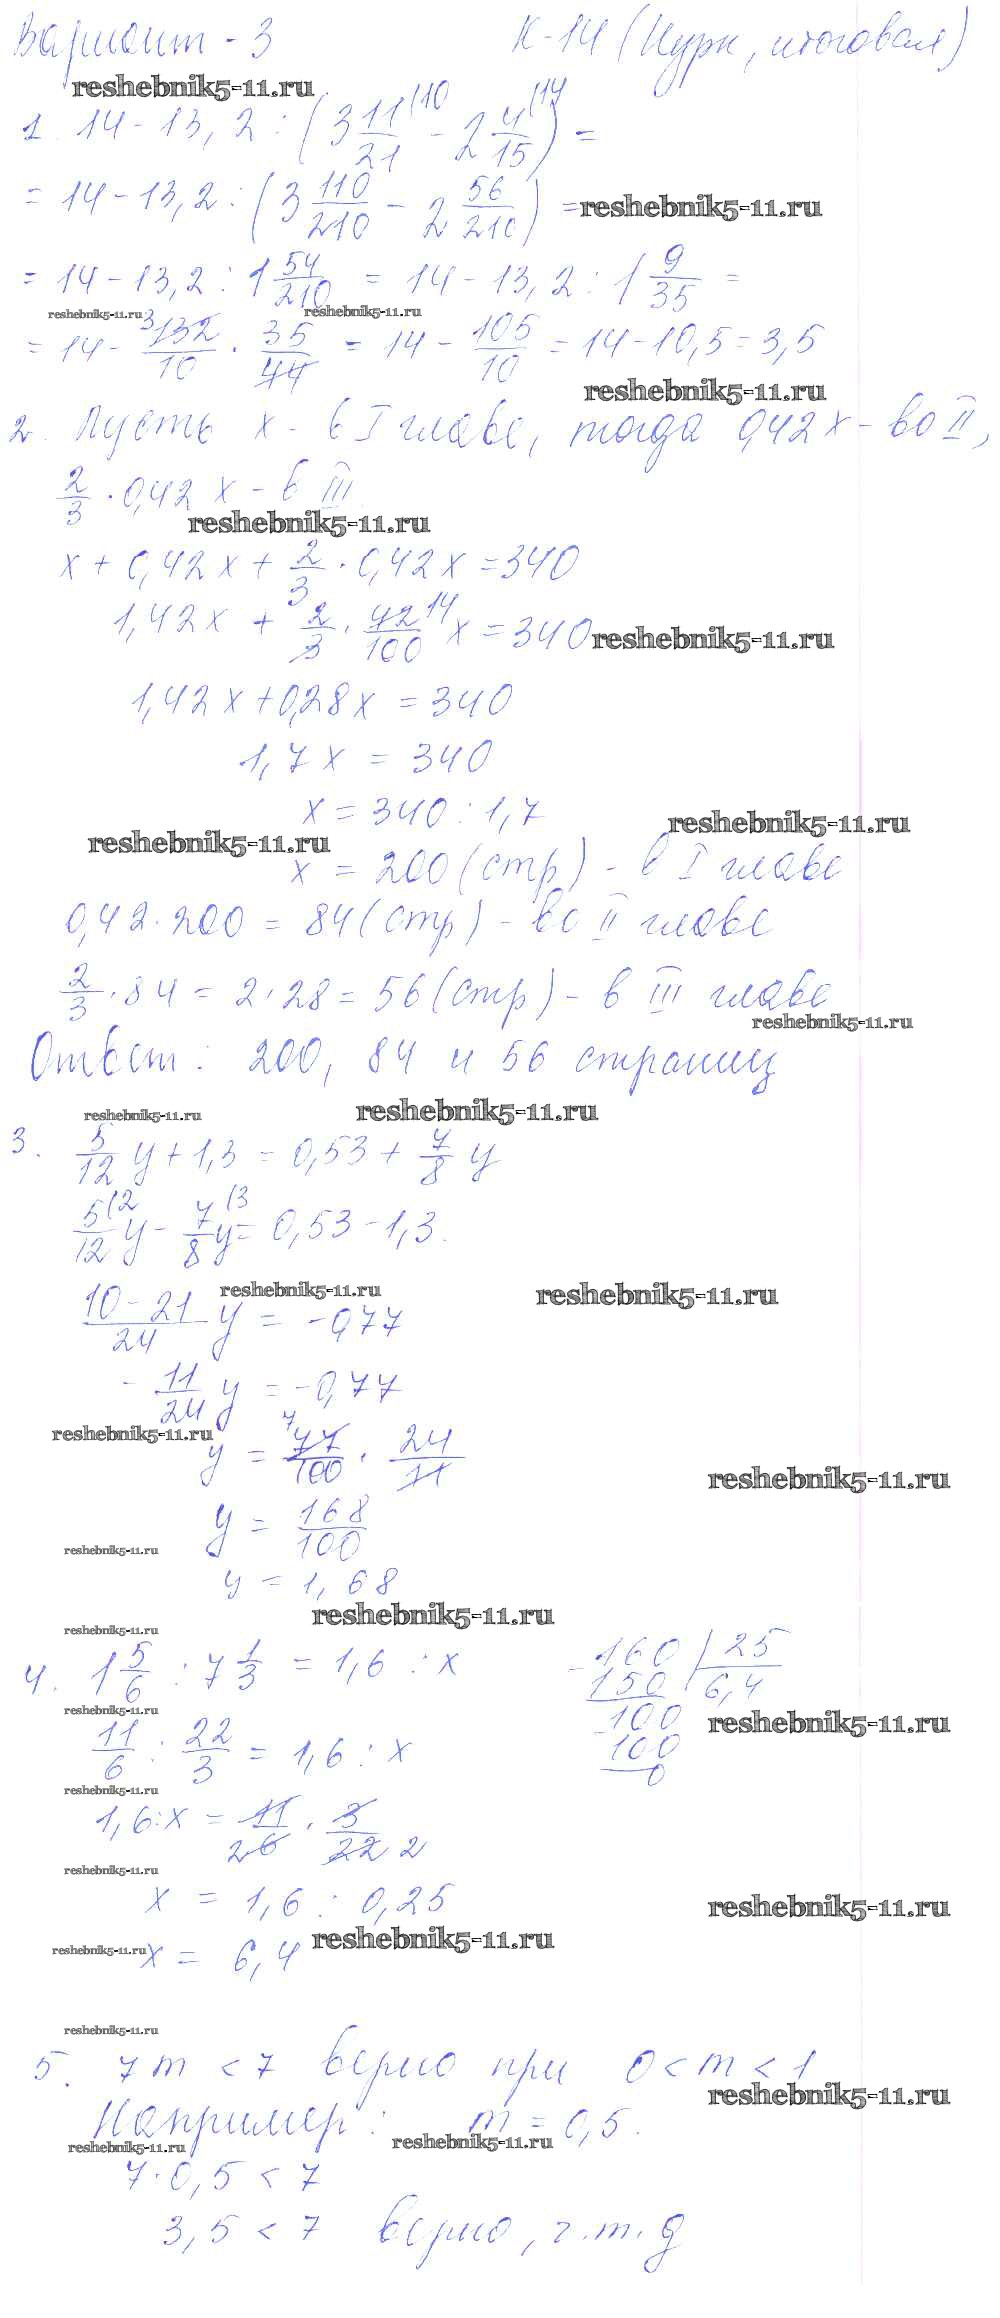 Вариант - 3 К-14 (Нурк, итоговая)
reshebnik5-11.ru
1. 14 - 13,2 : (3 11/21 (10 - 2 4/15 (14) =
= 14 - 13,2 : (3 110/210 - 2 56/210) =
reshebnik5-11.ru
= 14 - 13,2 : 1 54/210 = 14 - 13,2 : 1 9/35 =
reshebnik5-11.ru reshebnik5-11.ru
= 14 - 3 132/10 · 35/44 = 14 - 105/10 = 14 - 10,5 = 3,5
reshebnik5-11.ru
2. Пусть x - в I главе, тогда 0,42x - во II,
2/3 · 0,42 x - в III
reshebnik5-11.ru
x + 0,42x + 2/3 · 0,42x = 340
1,42x + 2/3 · 42/100 14 x = 340
reshebnik5-11.ru
1,42x + 0,28x = 340
1,7x = 340
x = 340 : 1,7
reshebnik5-11.ru
reshebnik5-11.ru
x = 200 (стр) - в I главе
0,42 · 200 = 84 (стр) - во II главе
2/3 · 84 = 2 · 28 = 56 (стр) - в III главе
reshebnik5-11.ru
Ответ: 200, 84 и 56 страниц
reshebnik5-11.ru reshebnik5-11.ru
3. 5/12 y + 1,3 = 0,53 + 7/8 y
5/12 (2 y - 7/8 (3 y = 0,53 - 1,3.
reshebnik5-11.ru reshebnik5-11.ru
10 - 21/24 y = -0,77
- 11/24 y = -0,77
reshebnik5-11.ru
y = 7 77/100 · 24/11
reshebnik5-11.ru
y = 168/100
reshebnik5-11.ru
y = 1,68
reshebnik5-11.ru
reshebnik5-11.ru
4. 1 5/6 : 7 1/3 = 1,6 : x
- 160 | 25
150 6,4
reshebnik5-11.ru
- 100
reshebnik5-11.ru
11/6 : 22/3 = 1,6 : x
100
0
reshebnik5-11.ru
1,6 : x = 11/2 6 · 3/22 2
reshebnik5-11.ru
x = 1,6 : 0,25
reshebnik5-11.ru
reshebnik5-11.ru
reshebnik5-11.ru
x = 6,4
reshebnik5-11.ru
5. 7m < 7 верно при 0 < m < 1
reshebnik5-11.ru
Например: m = 0,5.
reshebnik5-11.ru reshebnik5-11.ru
7 · 0,5 < 7
3,5 < 7 верно, ч.т.д